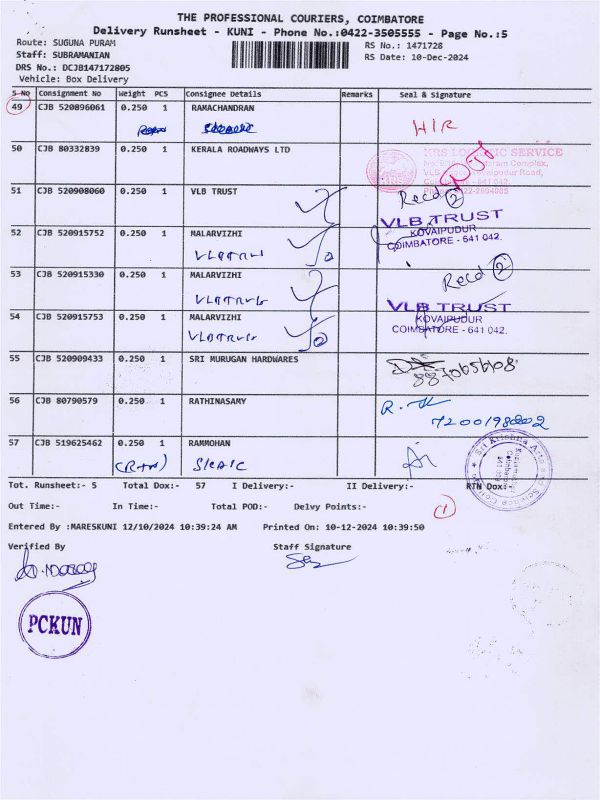 THE PROFESSIONAL COURIERS, COIMBATORE
Delivery Runsheet - KUNI - Phone No.:0422-3505555 - Page No.:5
Route: SUGUNA PURAM
RS No.: 1471728
Staff: SUBRAMANIAN
RS Date: 10-Dec-2024
DRS No.: DCJB147172805
Vehicle: Box Delivery
S No Consignment No Weight PCS Consignee Details Remarks Seal & Signature
49 CJB 520896061 0.250 1 RAMACHANDRAN
H/R
50 CJB 80332839 0.250 1 KERALA ROADWAYS LTD
KRS LOGISTIC SERVICE
51 CJB 520908060 0.250 1 VLB TRUST
Recd 2
VLB TRUST
KOVAIPUDUR
COIMBATORE - 641 042.
52 CJB 520915752 0.250 1 MALARVIZHI
VLB Trust
53 CJB 520915330 0.250 1 MALARVIZHI
VLB Trust
Recd 2
VLB TRUST
KOVAIPUDUR
COIMBATORE - 641 042.
54 CJB 520915753 0.250 1 MALARVIZHI
VLB Trust
55 CJB 520909433 0.250 1 SRI MURUGAN HARDWARES
56 CJB 80790579 0.250 1 RATHINASAMY
57 CJB 519625462 0.250 1 RAMMOHAN
Sri Krishna Arts and Science College
Tot. Runsheet:- 5 Total Dox:- 57 I Delivery:- II Delivery:- RTN Dox:-
Out Time:- In Time:- Total POD:- Delvy Points:-
1
Entered By :MARESKUNI 12/10/2024 10:39:24 AM Printed On: 10-12-2024 10:39:50
Verified By Staff Signature
PCKUN